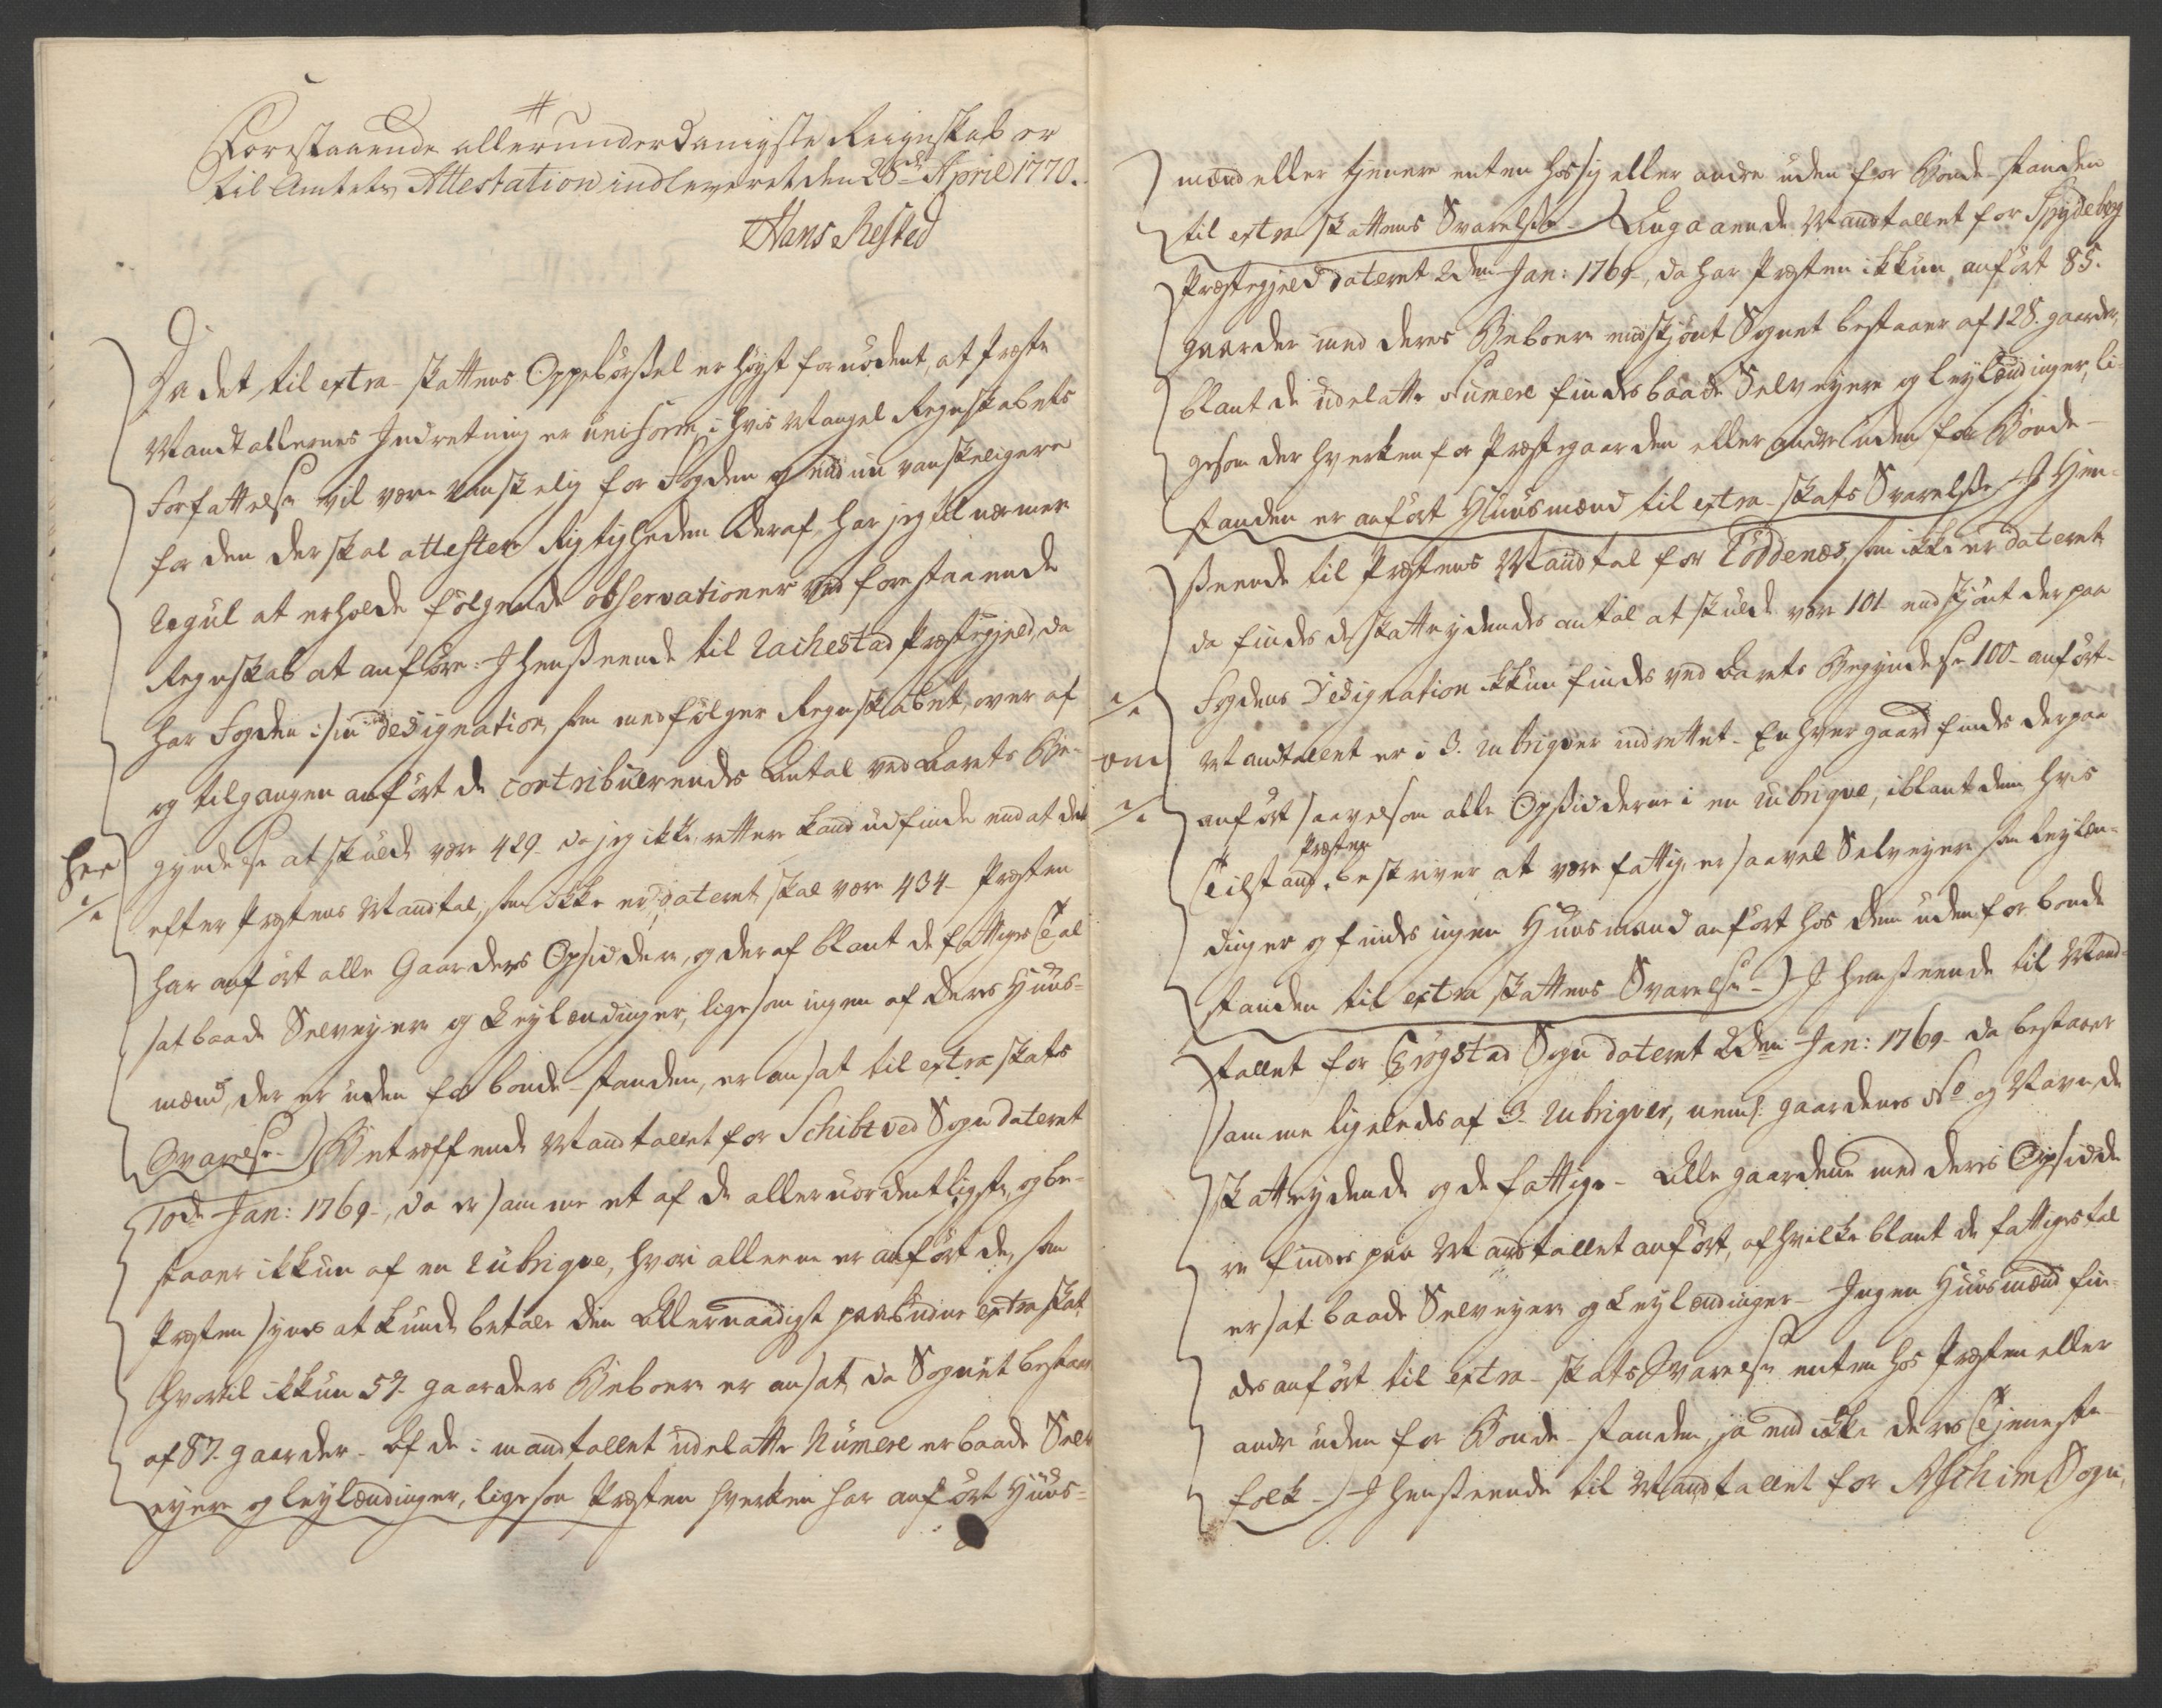 #
Forestaaende allerunderdanigste Reignskab er
til Amtets Attestation indleveret den 26de April 1770.
Hans Rested
Da det til extra-skattens Oppebørssel er høyst fornødent, at Præste
Mandtallernes Indretning er uniform, i hvis Mangel Regnskabets
Forfattelse vil være vanskelig for Fogden og end nu vanskeligere
for den der skal attestere Rigtigheden deraf, har jeg til nærmere
Regul at erholde følgende observationer ved forestaaende
Regnskab at anføre: I henseende til Rachestad Præstegield, da
har Fogden i sin designation, som medfølger Regnskabet, over af
og tilgangen anført de contribuerendes Antal ved Aarets Be-
gyndelse at skulde være 429 da jeg ikke rettere kand udfinde end at det
her
./.
efter Præstens Mandtal, som ikke er dateret skal være 434- Præsten
har anført alle Gaarders Opsiddere, og deraf blant de fattiges Tal
sat baade Selveyere og Leylændinger, ligesom ingen af deres Huus-
mænd, der er uden for bonde-standen, er ansat til extra skats
Svarelse-) Betræffende Mandtallet for Schibtved Sogn dateret
10de Jan: 1769-, da er samme et af de alleruordentligste, og be-
staaer ikkun af en Rubrique, hvori alleene er anført de, som
Præsten synes at kunde betale den Allernaadigst paabudne extra skat,
hvortil ikkun 57- gaarders Beboere er ansat, da Sognet bestaar
af 87. gaarder- Af de i mandtallet udelatte Numere er baade Selv
eyere og leylændinger, ligesom Præsten hverken har anført Huus-
mænd eller tjenere enten hos sig eller andre uden for Bonde-standen
til extra skattens Svarelse-) Angaaende Mandtallet for Spydeberg
Præstegjeld dateret 2den Jan: 1769-, da har Præsten ikkun anført 85.
gaarder med deres Beboere endskjønt Sognet bestaaer af 128. gaarder,
blant de udelatte Numere findes baade Selveyere og leylændinger, li-
gesom der hverken for Præstegaarden eller andre uden for Bonde-
standen er anført Huusmænd til extra-skats Svarelse-) I Hen-
seende til Præstens Mandtal for Eøddenæs, som ikke er dateret
da findes de skatteydendes antal at skulde være 101- endskjønt der paa
Fogdens Designation ikkun findes ved Aarets Begyndelse 100- anført-
./.
om
./.
Mandtallet er i 3. Rubriqver indrettet- Enhver gaard findes derpaa
anført saavelsom alle Opsidderne i en Rubrique, iblant dem hvis
Præsten
Tilstand beskriver at være fattig, er saavel Selveyere som leylæn-
dinger og findes ingen Huusmænd anført hos dem uden for bonde
standen til extra skattens Svarelse-) I henseende til Mand-
tallet for Trøgstad Sogn dateret 2den Jan: 1769- da bestaaer
samme ligeledes af 3. Rubriqver, neml: gaardenes No og Navn, de
skatteydende og de fattige- Alle gaardene med deres Opsidde
re findes paa Mandtallet anført, af hvilke blant de fattiges tal
er sat baade Selveyere og Leylændinger- Ingen Huusmænd fin-
des anført til extra-skats Svarelse enten hos Præsten eller
andre uden for Bonde-standen, ja end ikke deres Tjeneste
folk-) I henseende til Mandtallet for Aschim Sogn,